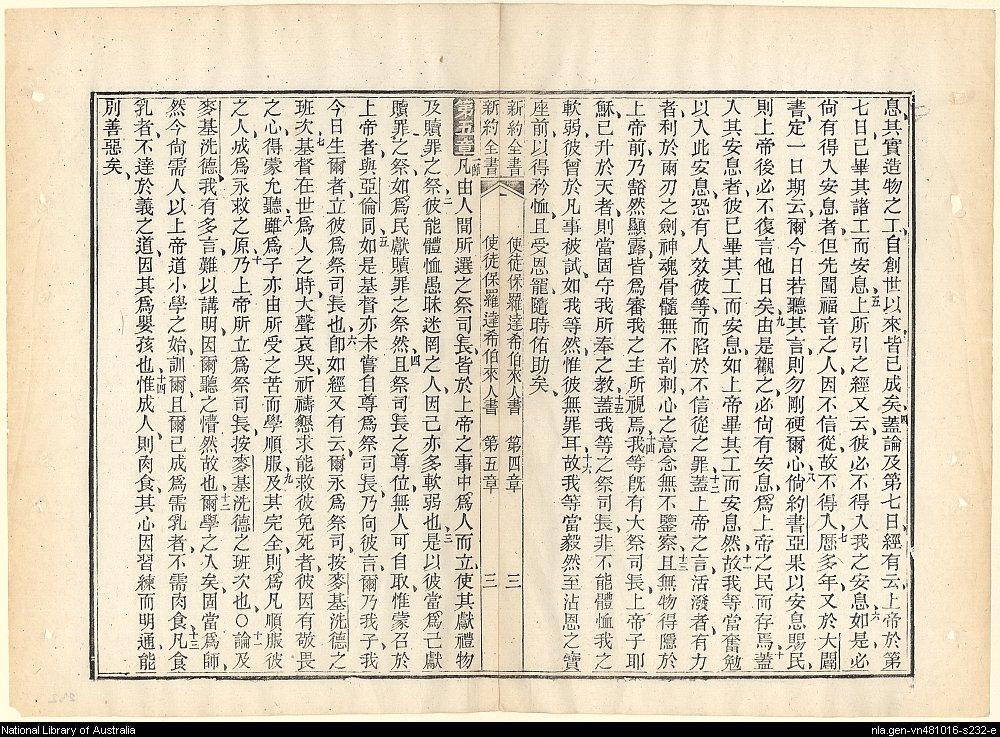 息其實造物之工自創世以來皆已成矣四蓋論及第七日經有云上帝於第
七日已畢其諸工而安息五上所引之經又云彼必不得入我之安息六如是必
尙有得入安息者但先聞福音之人因不信從故不得入七厯多年又於大闢
書定一日期云爾今日若聽其言則勿剛硬爾心八倘約書亞果以安息賜民
則上帝後必不復言他日矣九由是觀之必尙有安息爲上帝之民而存焉十蓋
入其安息者彼已畢其工而安息如上帝畢其工而安息然十一故我等當奮勉
以入此安息恐有人效彼等而陷於不信從之罪十二蓋上帝之言活潑者有力
者利於兩刃之劍神魂骨髓無不剖刺心之意念無不鑒察十三且無物得隱於
上帝前乃豁然顯露皆爲審我之主所視焉十四我等旣有大祭司長上帝子耶
穌已升於天者則當固守我所奉之教十五蓋我等之祭司長非不能體恤我之
軟弱彼曾於凡事被試如我等然惟彼無罪耳十六故我等當毅然至沾恩之寶
座前以得矜恤且受恩寵隨時佑助矣
新約全書 使徒保羅達希伯來人書 第四章 三
新約全書 使徒保羅達希伯來人書 第五章 三
第五章一凡由人間所選之祭司長皆於上帝之事中爲人而立使其獻禮物
及贖罪之祭二彼能體恤愚昧迷罔之人因己亦多軟弱也三是以彼當爲己獻
贖罪之祭如爲民獻贖罪之祭然四且祭司長之尊位無人可自取惟蒙召於
上帝者與亞倫同五如是基督亦未嘗自尊爲祭司長乃向彼言爾乃我子我
今日生爾者立彼爲祭司長也六卽如經又有云爾永爲祭司按麥基洗德之
班次七基督在世爲人之時大聲哀哭祈禱懇求能救彼免死者彼因有敬畏
之心得蒙允聽八雖爲子亦由所受之苦而學順服九及其完全則爲凡順服彼
之人成爲永救之原十乃上帝所立爲祭司長按麥基洗德之班次也〇十一論及
麥基洗德我有多言難以講明因爾聽之懵然故也十二爾學之久矣固當爲師
然今尙需人以上帝道小學之始訓爾且爾已成爲需乳者不需肉食十三凡食
乳者不達於義之道因其爲嬰孩也十四惟成人則肉食其心因習練而明通能
別善惡矣
National Library of Australia
nla.gen-vn481016-s232-e